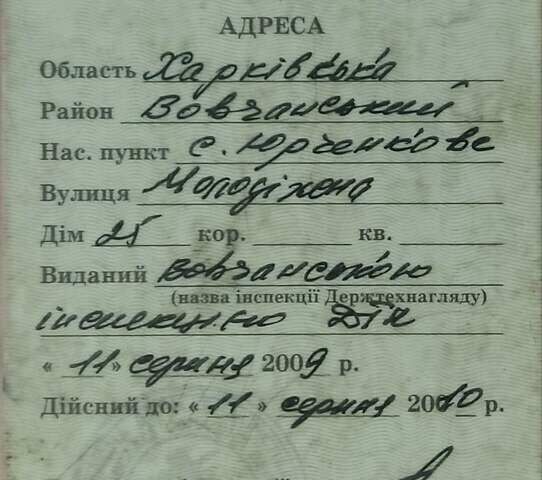 АДРЕСА
Область Харківська
Район Вовчанський
Нас. пункт с. Юрченкове
Вулиця Молодіжна
Дім 25 кор. кв.
Виданий Вовчанською
(назва інспекції Держтехнагляду)
інспекцією ДТН
« 11 » серпня 2009 р.
Дійсний до: « 11 » серпня 2010 р.